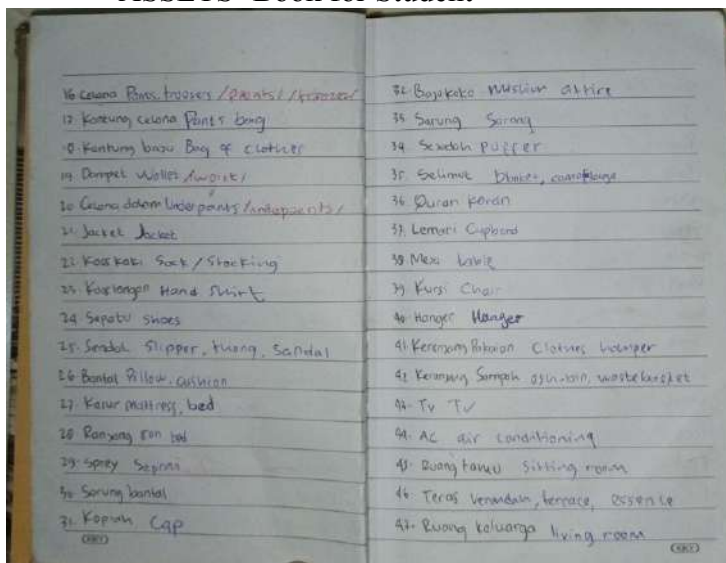 ASSETS Book for Student
16 Celana Pants, trousers /paents/ /
17. Kantung celana Pants bag
18. Kantung baju Bag of clothes
19. Dompet Wollet /
20 Celana dalam Underpants /
21. Jacket Jacket
22. Kaos kaki Sock / Stocking
23. Kaos tangan Hand Shirt
24 Sepatu shoes
25. Sendal Slipper, thong, Sandal
26 Bantal Pillow, cushion
27. Kasur mattress, bed
28 Ranjang bed
29. Sprey
30 Sarung bantal
31. Kopiah Cap
32 Baju koko muslim attire
33 Sarung Sarong
34
35. Selimut
36 Quran Koran
37. Lemari Cupboard
38 Meja table
39 Kursi Chair
40 Hanger Hanger
41 Keranjang Pakaian Clothes
42 Keranjang Sampah ash-bin, waste basket
43. Tv TV
44. AC air conditioning
45. Ruang tamu Sitting room
46 Teras verandah, terrace, essence
47. Ruang keluarga living room